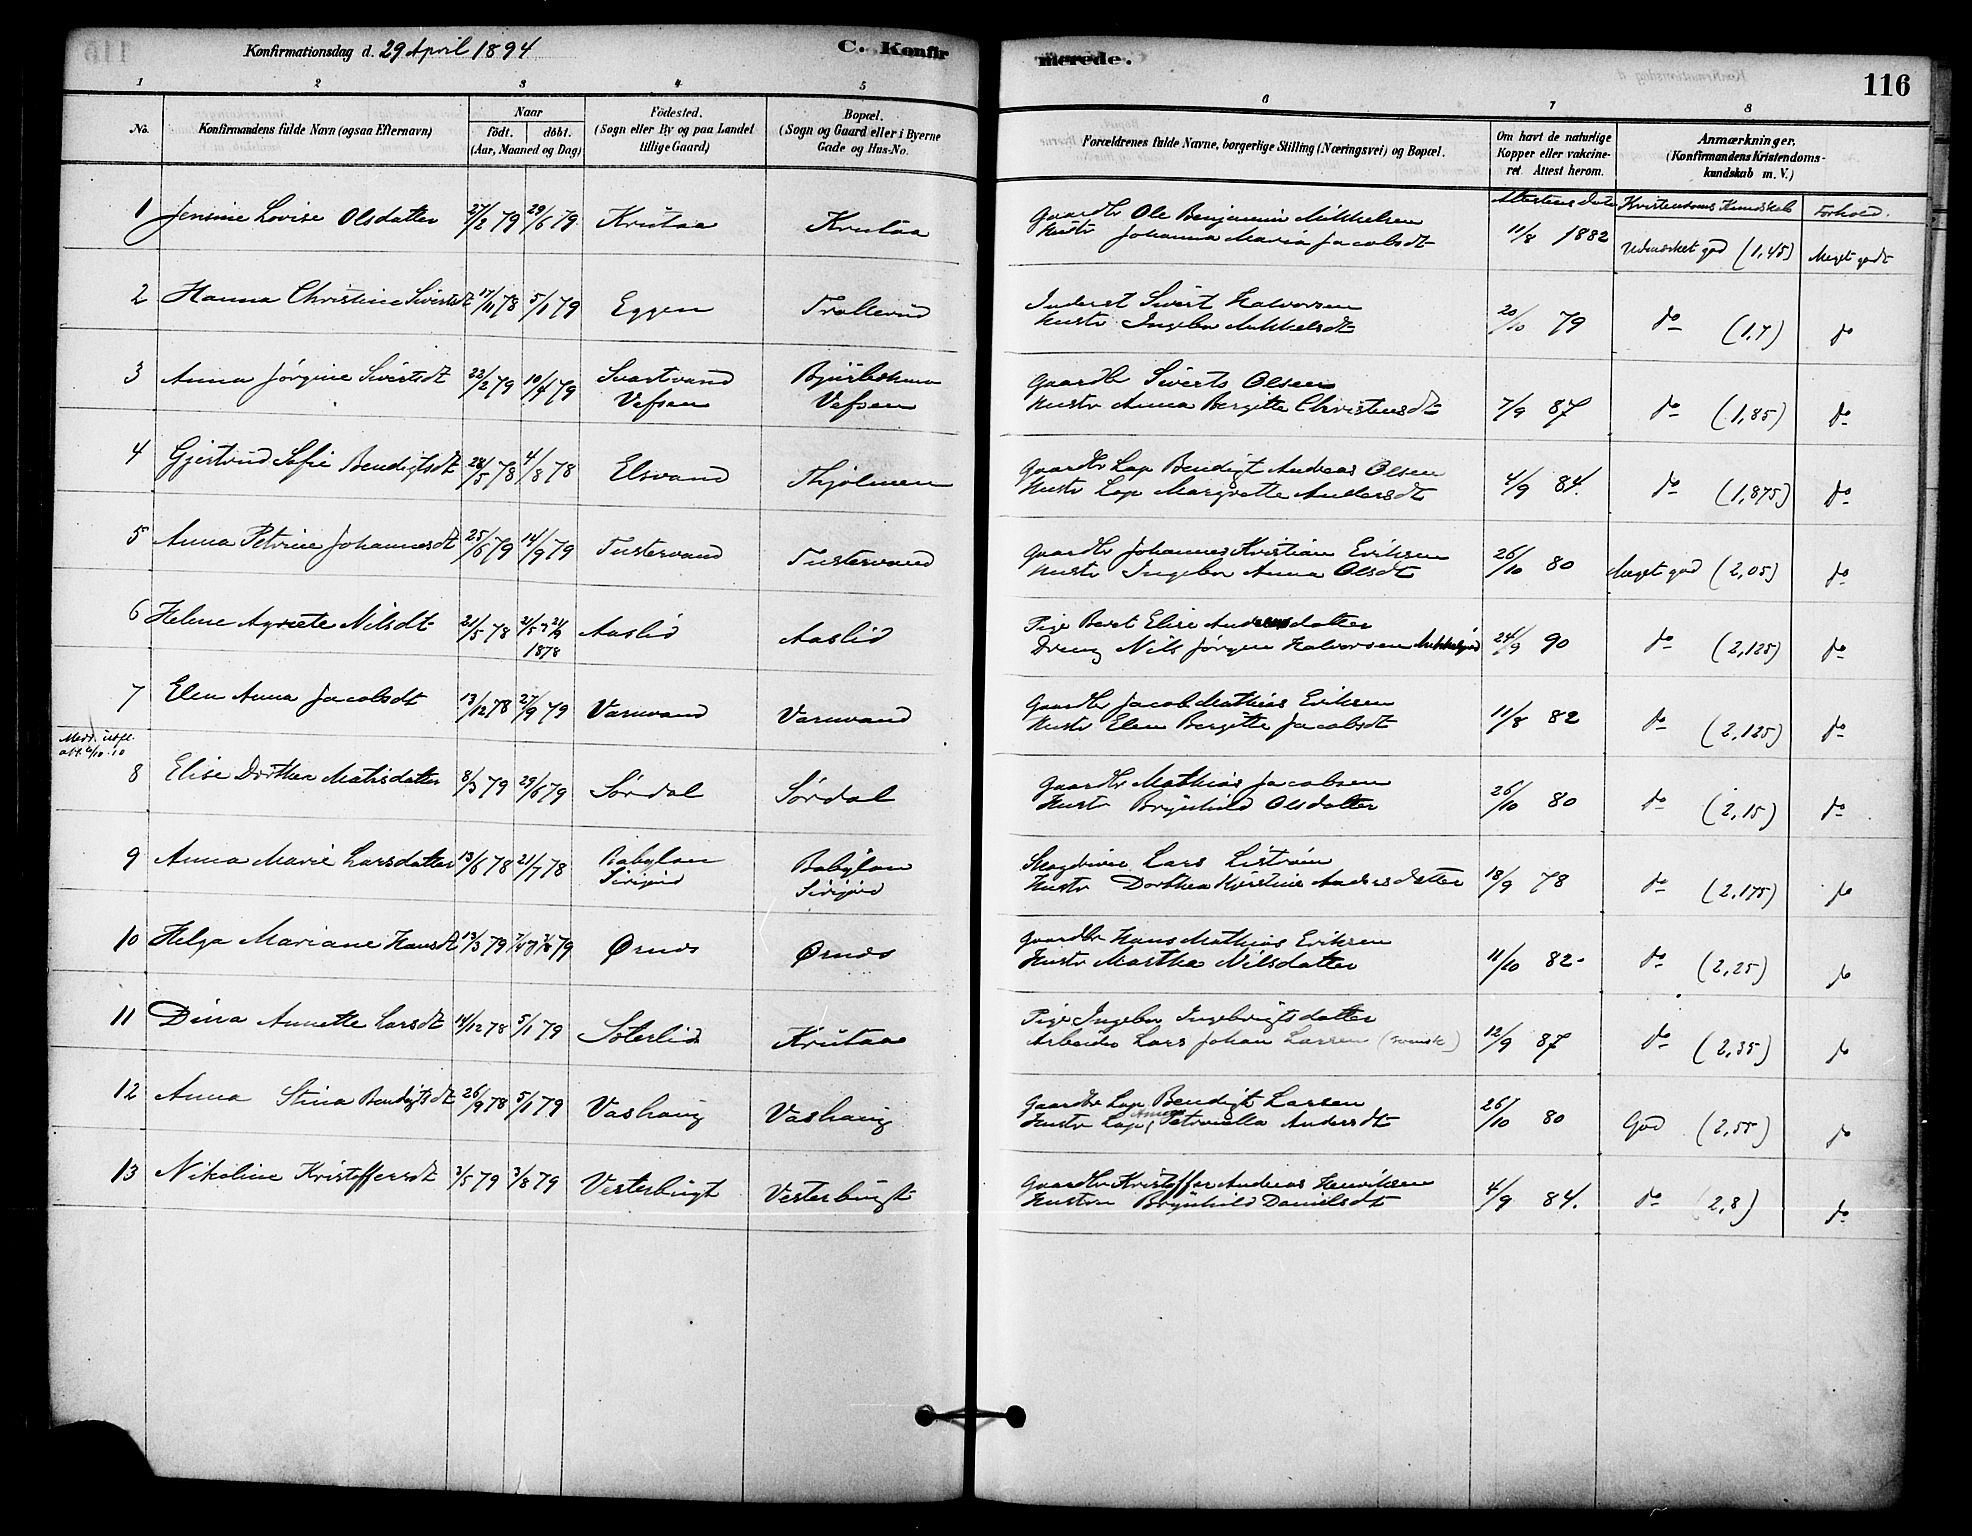 Konfirmationsdag d. 29 April 1894
C. Konfirmerede.
116
1 2 3 4 5 6 7 8
No.
Konfirmandens fulde Navn (ogsaa Efternavn)
Naar
født. döbt.
(Aar, Maaned og Dag)
Födested.
(Sogn eller By og paa Landet
tillige Gaard)
Bopæl.
(Sogn og Gaard eller i Byerne
Gade og Hus-No.
Forældrenes fulde Navne, borgerlige Stilling (Næringsvei) og Bopæl.
Om havt de naturlige
Kopper eller vakcine-
ret. Attest herom.
Anmærkninger.
(Konfirmandens Kristendoms-
kundskab m. V.)
Attestens Dato Kristendoms Kundskab Forhold.
1 Jensine Lovise Olsdatter 27/2 79 29/6 79 Krutaa Krutaa
Gaardbr Ole Benjamin Mikkelsen
Hustr Johanna Maria Jacobsdt 11/8 1882 Udmerket god (1,45) Meget godt
2 Hanna Christine Sivertsdt 17/11 78 5/1 79 Eggen Trollerud
Inderst Sivert Halvorsen
Hustr Ingebor Mikkelsdt 20/10 79 do (1,7) do
3 Anna Jørgine Sivertsdt 22/2 79 10/4 79 Svartvand
Vefsen
Vefsen
Gaardbr Siverts Olsen
Hustr Anna Bergitte Christensdt 7/9 87 do (1,85) do
4 Gjertrud Sofie Bendigtsdt 28/5 78 4/8 78 Elsvand Thjolmen
Gaardbr Lap Bendigt Andreas Olsen
Hustr Lap Margrette Andersdt 4/9 84. do (1,875) do
5 Anna Petrine Johannesdt 25/6 79 14/9 79 Tustervand Tustervand
Gaardbr Johannes Kristian Eriksen
Hustr Ingebor Anna Olsdt 26/10 80 Meget god (2,05) do
6 Helene Agnete Nilsdt 21/5 78
1878 Aaslid Aaslid
Pige Beret Elise Andersdatter
Dreng Nils Jørgen Halvorsen 24/9 90 do (2,125) do
7 Elen Anna Jacobsdt 13/12 78 27/9 79 Varnvand Varnvand
Gaardbr Jacob Mathias Eriksen
Hustr Elen Bergitte Jacobsdt 11/8 82 do (2,125) do
8 Elise Dorthea Matisdatter 8/3 79 29/6 79 Sørdal Sørdal
Gaardbr Mathias Jacobsen
Hustr Brynhild Olsdatter 26/10 80 do (2,15) do
9 Anna Marie Larsdatter 13/6 78 21/7 78 Babylon Babylon
Lars Liström
Hustr Dorthea Kirstine Andersdatter 18/9 78 do (2,175) do
10 Helga Mariane Hansdt 13/3 79 Ørnes Ørnes
Gaardbr Hans Mathias Eriksen
Hustr Martha Nilsdatter 11/10 82 do (2,25) do
11 Dina Annette Larsdt 14/12 78 5/1 79 Soterlid Krutaa
Pige Ingebor Ingebrigtsdatter
Arbeider Lars Johan Larsen (svensk) 12/9 87 do (2,35) do
12 Anna Stina Bendigtsdt 26/9 78 5/1 79 Vashaug Vashaug
Gaardbr Lap Bendigt Larsen
Hustr Lap, Anna Petronella Andersdt 26/10 80 God (2,55) do
13 Nikoline Kristoffersdt 3/5 79 3/8 79 Vesterbugt Vesterbugt
Gaardbr Kristoffer Andreas Henriksen
Hustru Brynhild Danielsdt 4/9 84. do (2,8) do